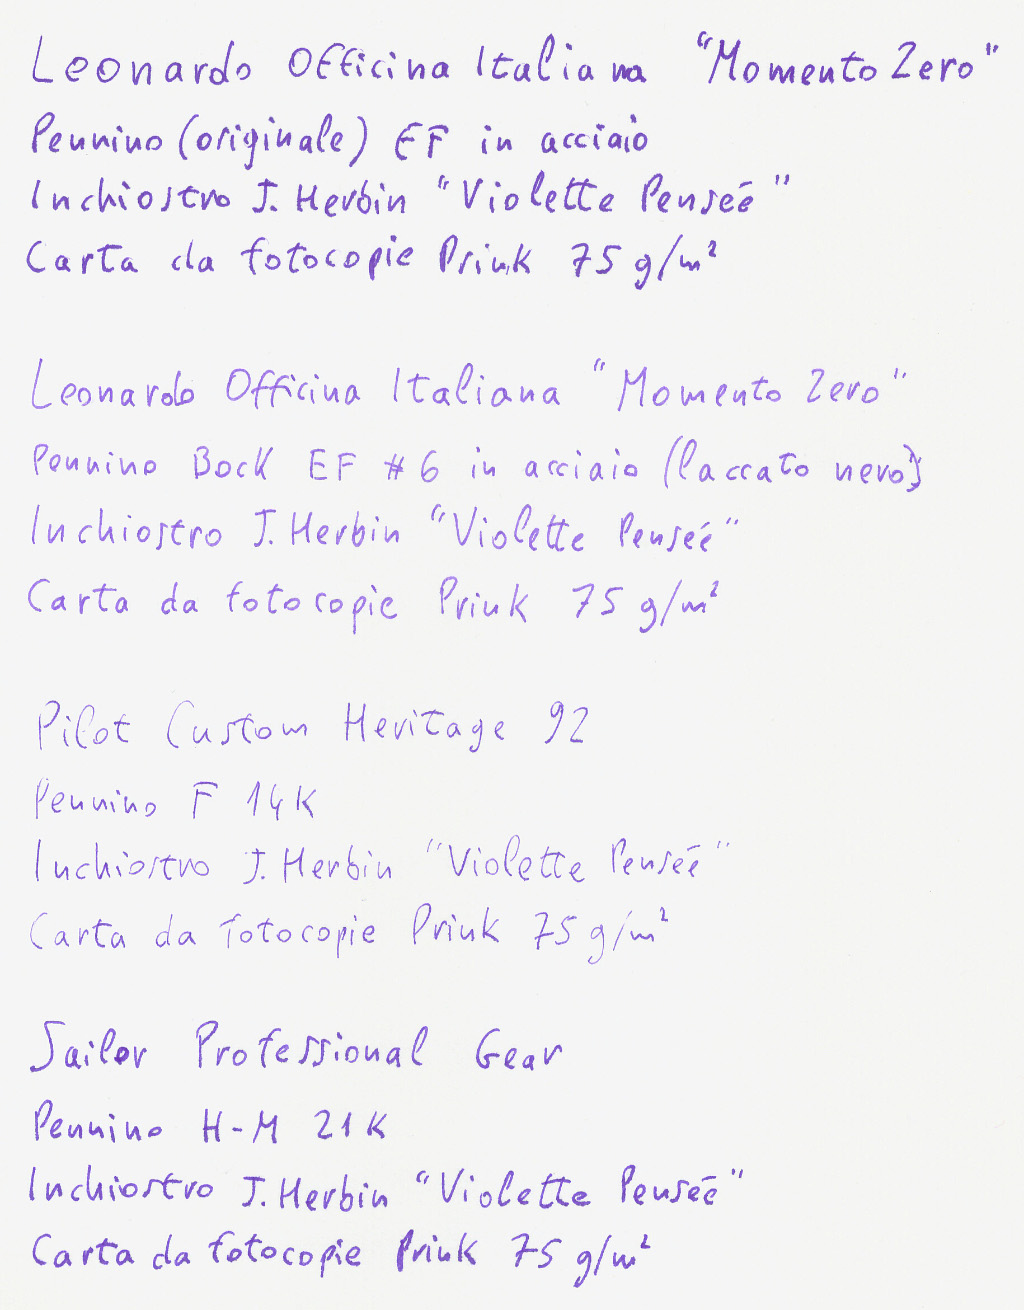 Leonardo Officina Italiana "Momento Zero"
Pennino (originale) EF in acciaio
Inchiostro J. Herbin "Violette Penseé"
Carta da fotocopie Prink 75 g/m²
Leonardo Officina Italiana "Momento Zero"
Pennino Bock EF #6 in acciaio (laccato nero)
Inchiostro J. Herbin "Violette Penseé"
Carta da fotocopie Prink 75 g/m²
Pilot Custom Heritage 92
Pennino F 14K
Inchiostro J. Herbin "Violette Penseé"
Carta da fotocopie Prink 75 g/m²
Sailor Professional Gear
Pennino H-M 21K
Inchiostro J. Herbin "Violette Penseé"
Carta da fotocopie Prink 75 g/m²